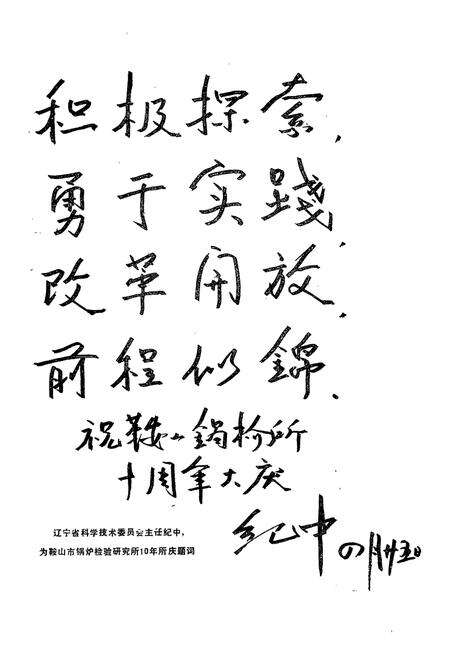 积极探索,
勇于实踐,
改革开放,
前程似錦.
祝鞍山锅检所
十周年大庆
纪中
辽宁省科学技术委员会主任纪中,
为鞍山市锅炉检验研究所10年所庆题词